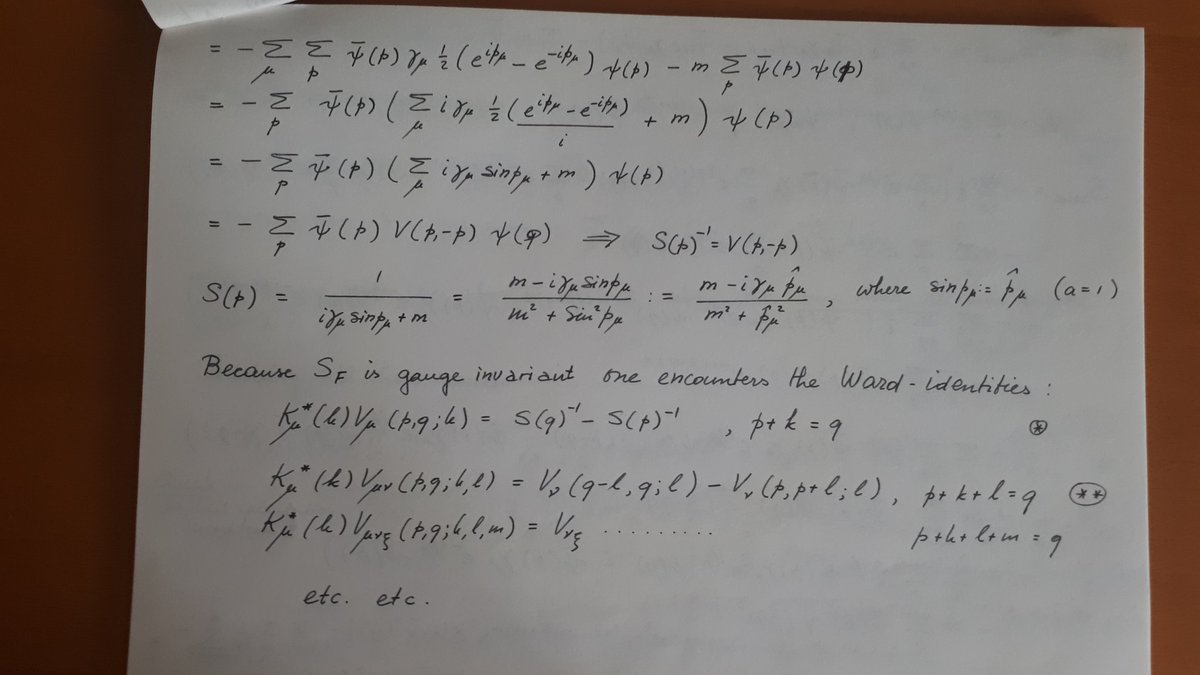 = - Σ_μ Σ_p ψ̄(p) γ_μ ½ (e^{ip_μ} - e^{-ip_μ}) ψ(p) - m Σ_p ψ̄(p) ψ(p)
= - Σ_p ψ̄(p) ( Σ_μ i γ_μ ½ (e^{ip_μ} - e^{-ip_μ})/i + m ) ψ(p)
= - Σ_p ψ̄(p) ( Σ_μ i γ_μ sin p_μ + m ) ψ(p)
= - Σ_p ψ̄(p) V(p,-p) ψ(p) ⇒ S(p)^{-1} = V(p,-p)
S(p) = 1/(iγ_μ sin p_μ + m) = (m - iγ_μ sin p_μ)/(m² + Sin² p_μ) := (m - iγ_μ p̂_μ)/(m² + p̂_μ²) , where sin p_μ := p̂_μ (a = 1)
Because S_F is gauge invariant one encounters the Ward-identities :
K_μ^*(k) V_μ (p,q;k) = S(q)^{-1} - S(p)^{-1} , p + k = q ⊛
K_μ^*(k) V_{μν} (p,q;k,l) = V_ν (q-l, q; l) - V_ν (p, p+l; l) , p + k + l = q (**)
K_μ^*(k) V_{μνξ} (p,q;k,l,m) = V_{νξ} ......... p+k+l+m = q
etc. etc.